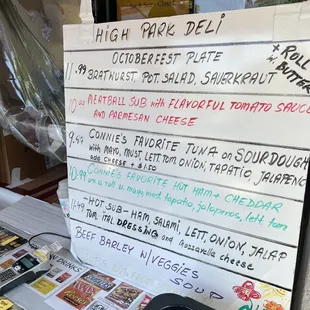 HIGH PARK DELI
OCTOBERFEST PLATE
11.99 BRATHURST, POT. SALAD, SAUERKRAUT
+ ROLL
W/ BUTTER
10.99 MEATBALL SUB with FLAVORFUL TOMATO SAUCE
AND PARMESAN CHEESE
9.49 CONNIE'S FAVORITE TUNA on SOURDOUGH
with MAYO, MUST, LETT TOM, ONION, TAPATIO, JALAPENO
ADD CHEESE + $1.50
10.99 CONNIE'S FAVORITE HOT HAM + CHEDDAR
on a roll w. mayo, must, tapatio, jalapenos, lett tom
11.49 -HOT SUB- HAM, SALAMI, LETT, ONION, JALAP
TOM, ITAL DRESSING and mozzarella cheese
BEEF BARLEY W/VEGGIES
SOUP